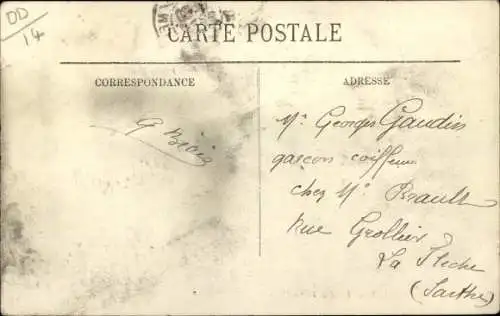 OD
14
CARTE POSTALE
CORRESPONDANCE
ADRESSE
G
Mr. Georges Gaudin
gascon coiffeur
chez Mr. Brault
Rue Grollier
La Flèche
(Sarthe)